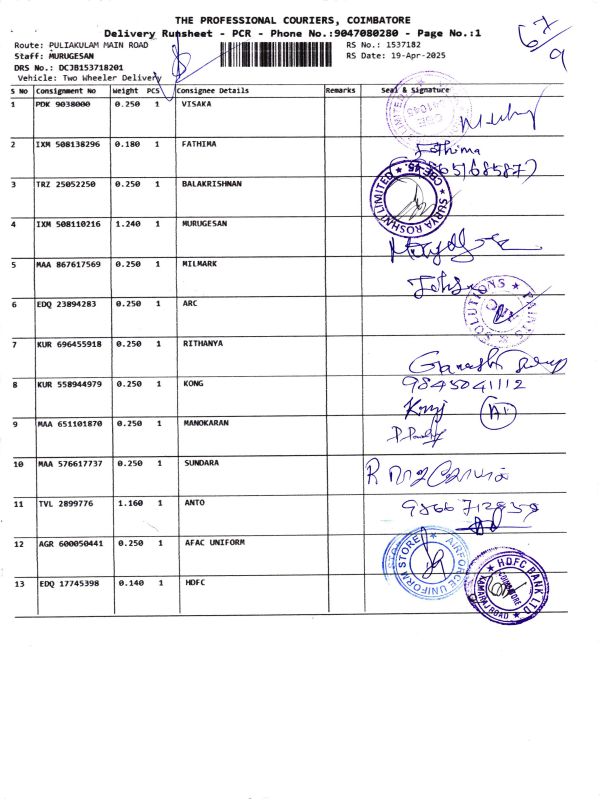 THE PROFESSIONAL COURIERS, COIMBATORE
Delivery Runsheet - PCR - Phone No.:9047080280 - Page No.:1
Route: PULIAKULAM MAIN ROAD RS No.: 1537182
Staff: MURUGESAN RS Date: 19-Apr-2025
DRS No.: DCJB153718201
Vehicle: Two Wheeler Delivery
67/9
S No Consignment No Weight PCS Consignee Details Remarks Seal & Signature
1 PDK 9038000 0.250 1 VISAKA
2 IXM 508138296 0.180 1 FATHIMA Fathima
3 TRZ 25052250 0.250 1 BALAKRISHNAN SURYA ROSHNI LIMITED CBE-45
4 IXM 508110216 1.240 1 MURUGESAN
5 MAA 867617569 0.250 1 MILMARK
6 EDQ 23894283 0.250 1 ARC PAINTS SOLUTIONS
7 KUR 696455918 0.250 1 RITHANYA Ganesh
8 KUR 558944979 0.250 1 KONG 9845041112
9 MAA 651101870 0.250 1 MANOKARAN
10 MAA 576617737 0.250 1 SUNDARA
11 TVL 2899776 1.160 1 ANTO
12 AGR 600050441 0.250 1 AFAC UNIFORM AIRFORCE UNIFORM STORE
13 EDQ 17745398 0.140 1 HDFC HDFC BANK LTD COIMBATORE KAMARAJ ROAD